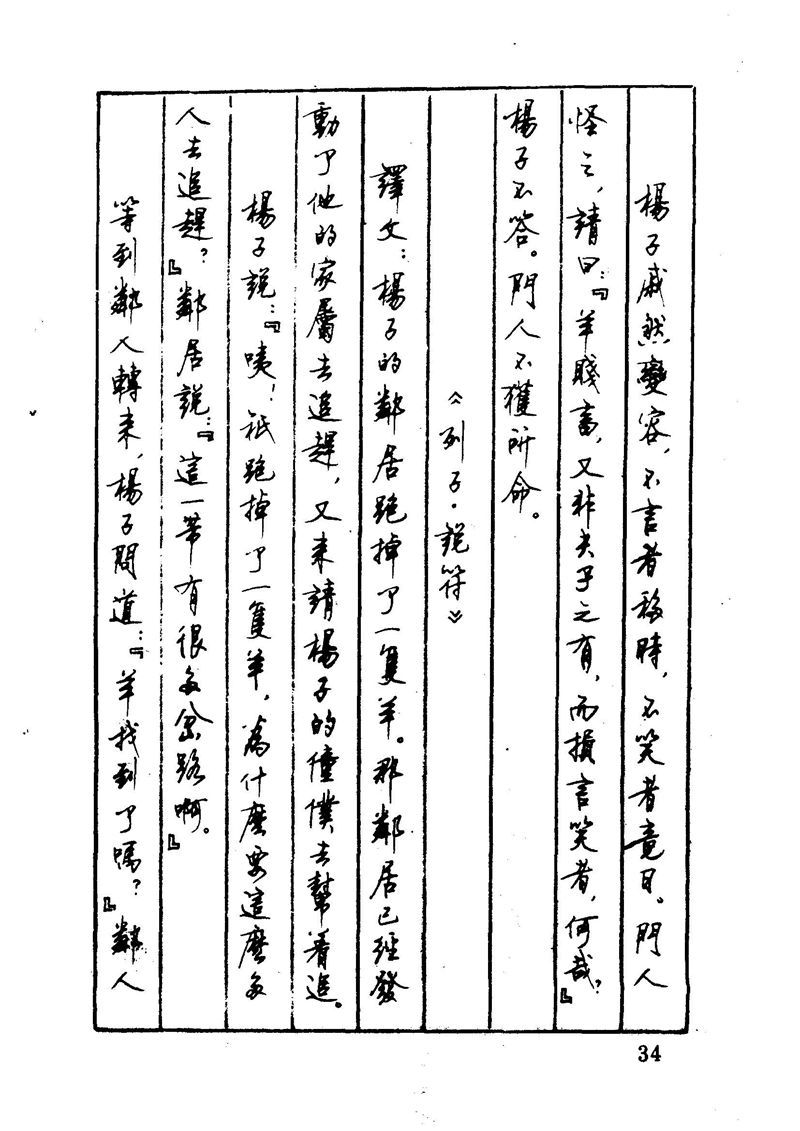 楊子戚然變容，不言者移時，不笑者竟日。門人
怪之，請曰：『羊賤畜，又非夫子之有，而損言笑者，何哉？』
楊子不答。門人不獲所命。
《列子·說符》
譯文：楊子的鄰居跑掉了一隻羊。那鄰居已經發
動了他的家屬去追趕，又來請楊子的僮僕去幫着追。
楊子說：『咦！祇跑掉了一隻羊，為什麼要這麼多
人去追趕？』鄰居說：『這一帶有很多岔路啊。』
等到鄰人轉來，楊子問道：『羊找到了嗎？』鄰人
34